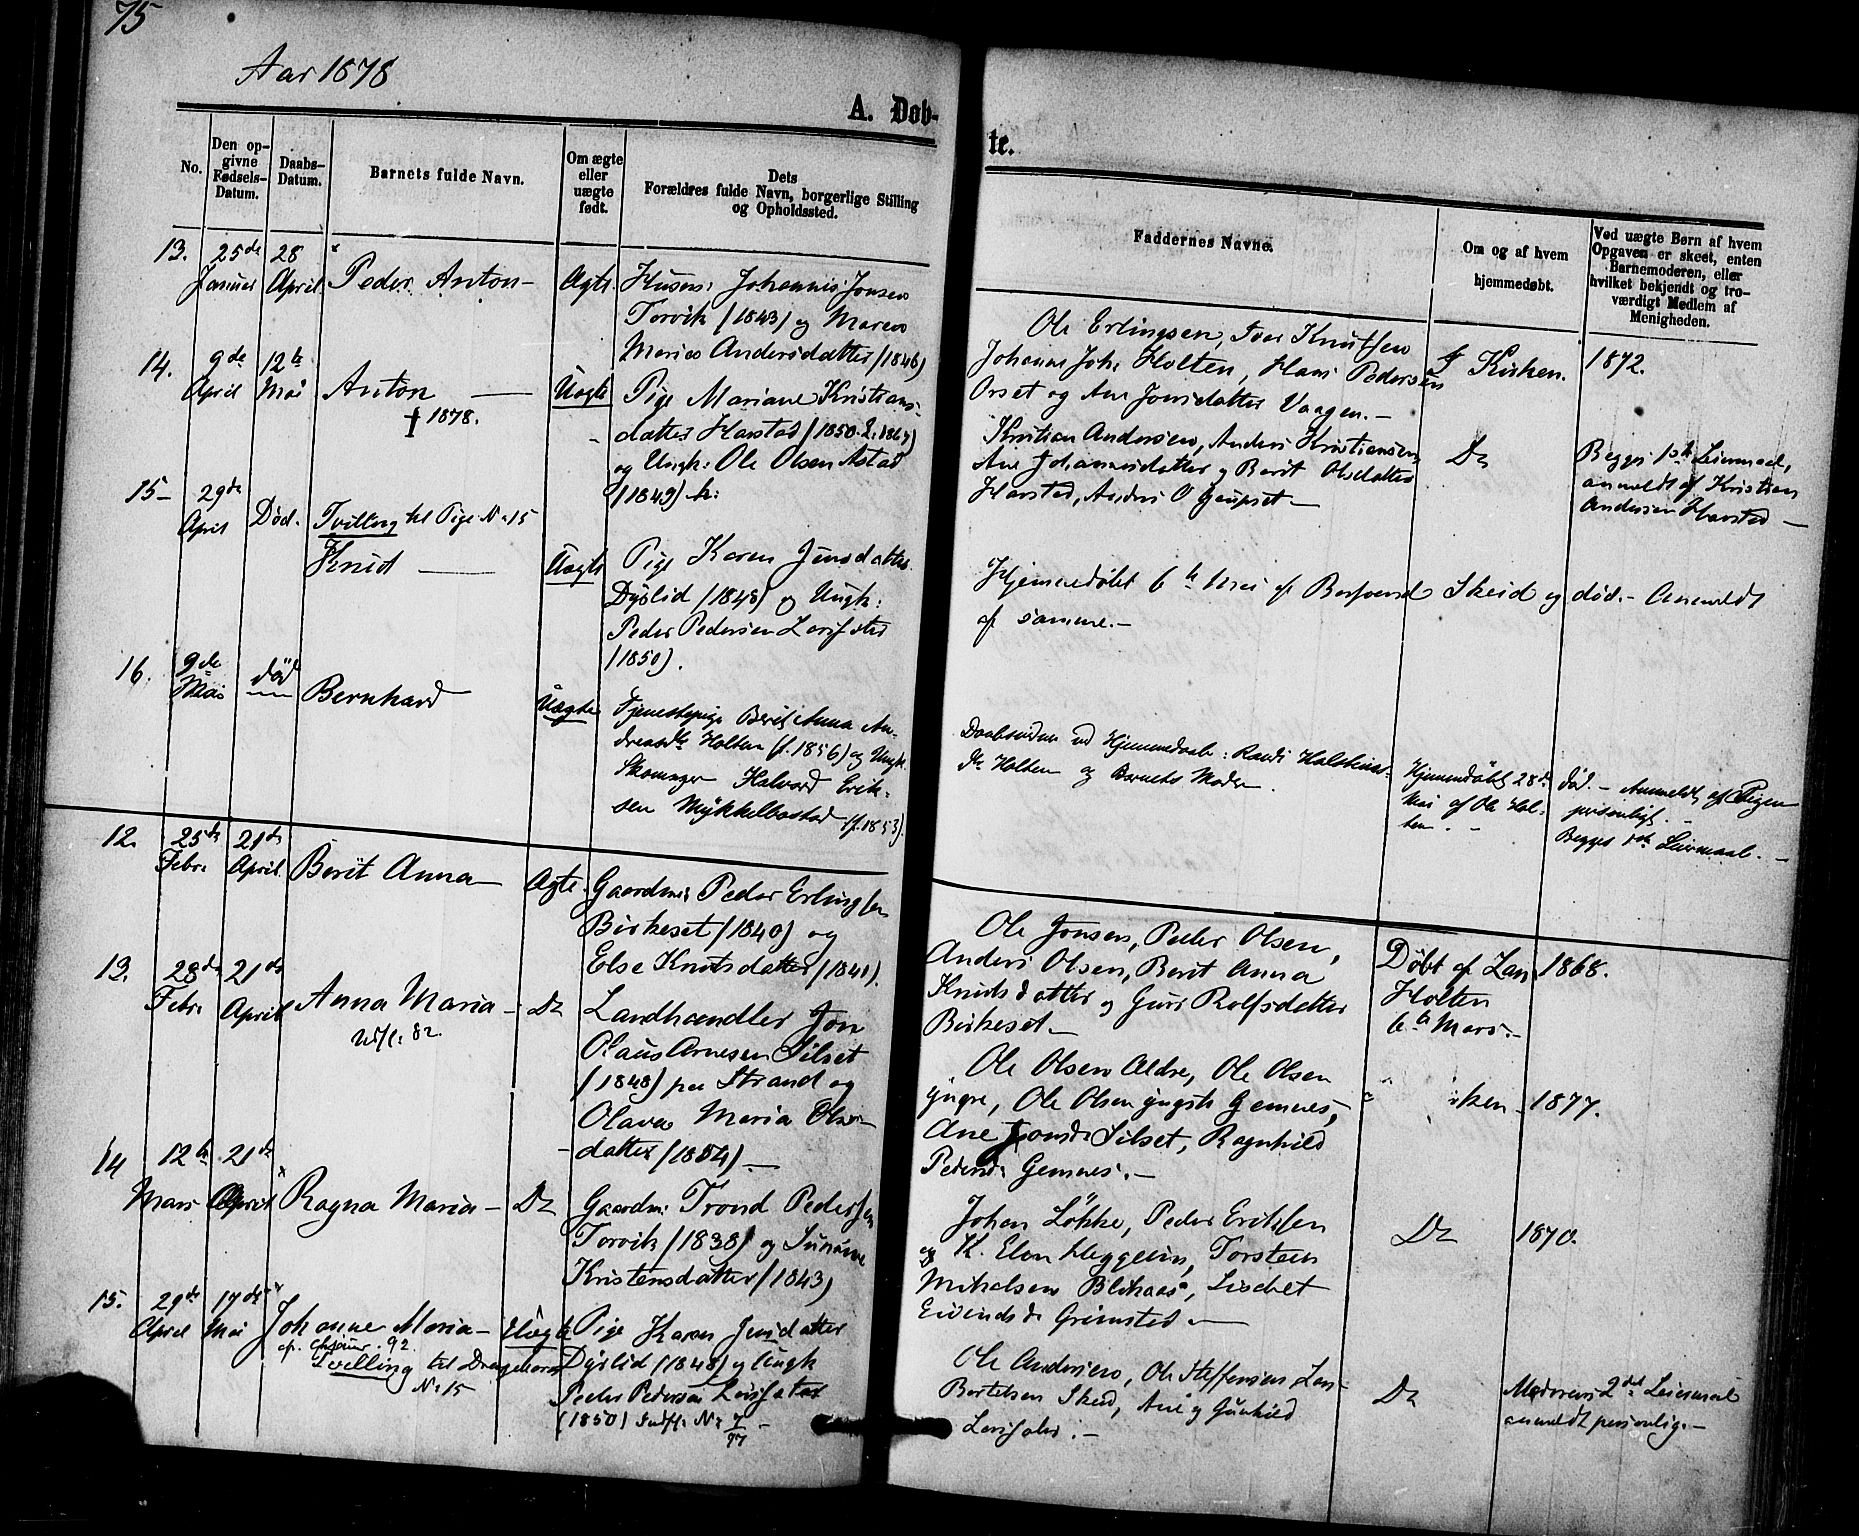 75
Aar 1878
A. Døb-
te.
No.
Den op-
givne
Fødsels-
Datum.
Daabs-
Datum.
Barnets fulde Navn.
Om ægte
eller
uægte
født.
Dets
Forældres fulde Navn, borgerlige Stilling
og Opholdssted.
Faddernes Navne.
Om og af hvem
hjemmedøbt.
Ved uægte Børn af hvem
Opgaven er skeet, enten
Barnemoderen, eller
hvilket bekjendt og tro-
værdigt Medlem af
Menigheden.
13.
25de
Januar
28
April
Peder Anton
Ægte
Husm: Johannes Jonsen
Torvik (1843) og Maren
Maria Andersdatter (1846)
Ole Erlingsen, Iver Knutsen
Johanne Joh: Holten, Hans Pedersen
Orset og Ane Jonsdatter Vaagen.-
I Kirken.
1872.
14.
9de
April
12te
Mai
Anton
† 1878.
Uægte
Pige Mariane Kristians-
datter Harstad (1850.
og Ungk: Ole Olsen Astad
(1849)
Kristian Andersen, Anders Kristiansen,
Ane Johannesdatter og Berit Olsdatter
Harstad, Anders O Gjeupset -
Do
Begges 1ste Leiermaal,
anmeldt af Kristian
Andersen Harstad -
15-
29de
April
Død.
Tvilling til Pige No 15
Knud
Uægte
Pige Karen Jensdatter
Dyrlid (1848) og Ungk:
Peder Pedersen
(1850).
Hjemmedøbt 6te Mai af Skeid og død. - Anmeldt
af samme. -
16.
9de
Mai
død
Bernhard
Uægte
Tjenestepige Berit Anna An-
dreasdtr Holten (f. 1856) og Ungk.
Skomager Halvard Erik-
sen Mykkelbostad (f. 1853).
Daabsvidner ved Hjemmedaab: Randi Halsteins-
dtr Holten og Barnets Moder.
Hjemmedøbt 28de
Mai af Ole Hol-
ten. -
død. - Anmeldt af Pigen
personligt. -
Begges 1ste Leiermaal. -
12.
25de
Febr:
21de
April
Berit Anna
Ægte
Gaardm: Peder Erlingsen
Birkeset (1840) og
Else Knutsdatter (1841).
Ole Jonsen, Peder Olsen,
Anders Olsen, Berit Anna
Knutsdatter og Guri Rolfsdatter
Birkeset -
Døbt af Lars
Holten
6te Mars.-
1868.
13.
28de
Febr:
21de
April
Anna Maria
Udfl: 82.
Do
Landhandler Jon
Olaus Arnesen Silset
(1848) paa Strand og
Olava Maria Ols-
datter (1854) -
Ole Olsen Ældre, Ole Olsen
yngre, Ole Olsen yngste Gemnes,
Ane Jonsd: Silset, Ragnhild
Pedersd: Gemnes. -
rken
1877.
14
12te
Mars
21de
April
Ragna Maria
Do
Gaardm: Trond Pedersen
Torvik (1838) og Susanne
Kristensdatter (1843)
Johan Løkke, Peder Eriksen
og K. Elen Heggeim, Torsten
Mikalsen Blikaas, Lisabet
Eivindsdr Grimstad -
Do
1870.
15.
29de
April
17de
Mai
Johanne Maria
92.
Tvilling til Drengebarn
No 15
Uægte
Pige Karen Jensdatter
Dyrlid (1848) og Ungk
Peder Pedersen
(1850) Indfl: No 7/97 -
Ole Andersen, Ole Steffensen, Lars
Bertelsen Skeid, Ane og Gunhild
Do
Moderens 2det Leiermaal
anmeldt personlig. -